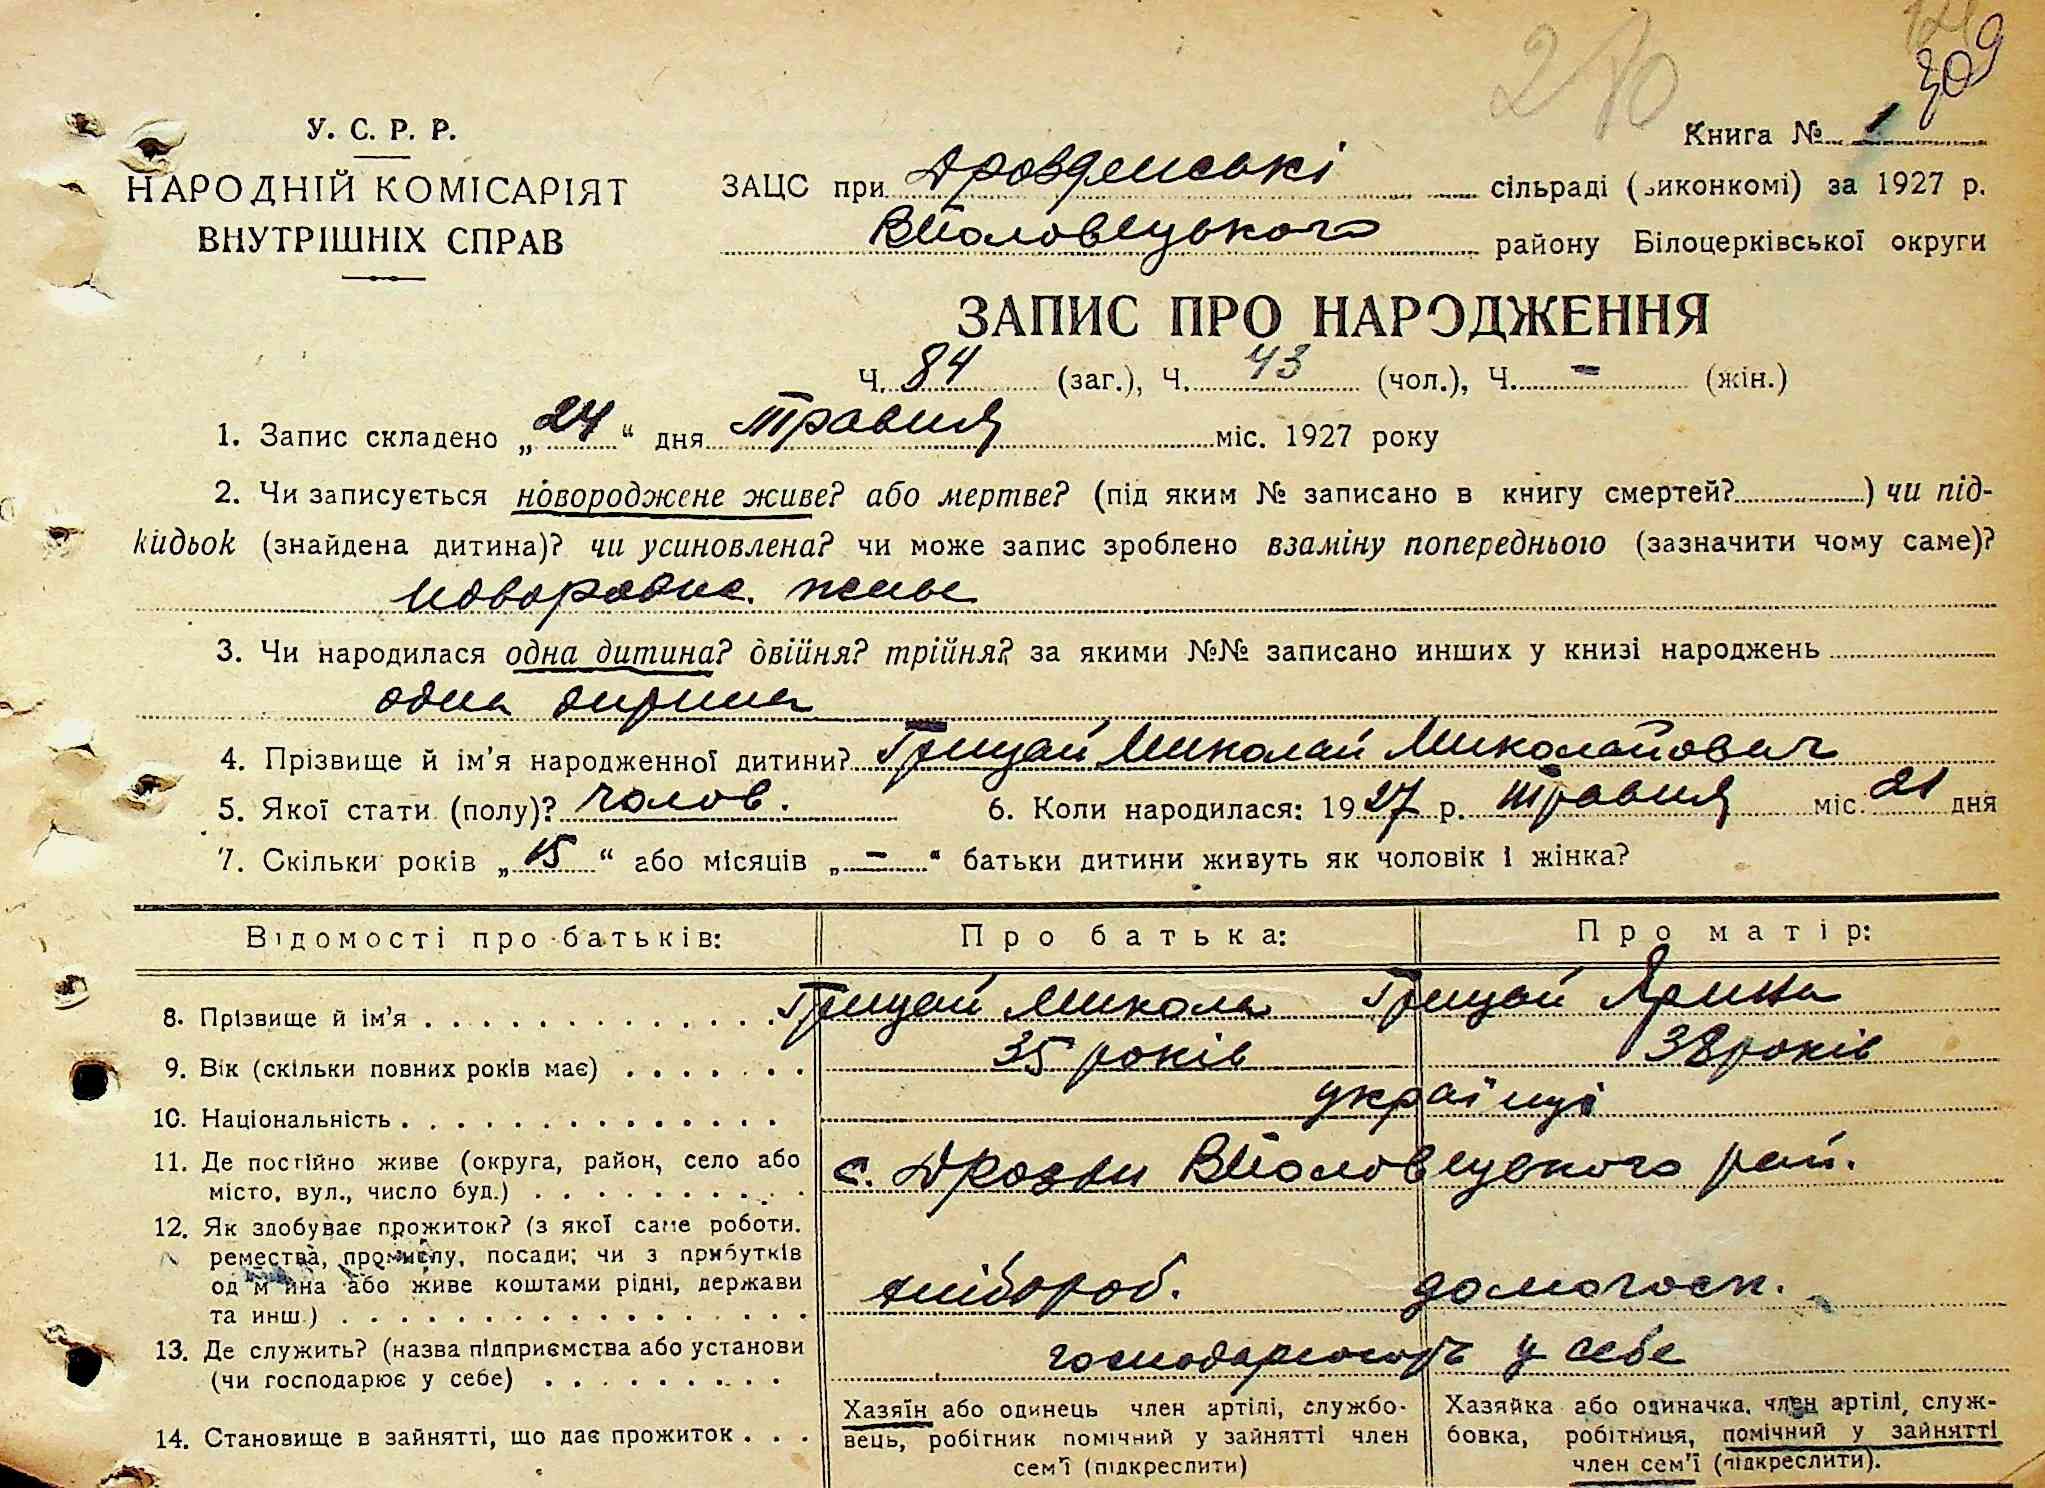 309
210
У. С. Р. Р.
НАРОДНІЙ КОМІСАРІЯТ
ВНУТРІШНІХ СПРАВ
Книга № 1
ЗАЦС при Дрозденські сільраді (виконкомі) за 1927 р.
району Білоцерківської округи
ЗАПИС ПРО НАРОДЖЕННЯ
Ч. 84 (заг.), Ч. 43 (чол.), Ч. - (жін.)
1. Запис складено „24“ дня травня міс. 1927 року
2. Чи записується новороджене живе? або мертве? (під яким № записано в книгу смертей? ) чи під-
кидьок (знайдена дитина)? чи усиновлена? чи може запис зроблено взаміну попереднього (зазначити чому саме)?
живе
3. Чи народилася одна дитина? двійня? трійня? за якими №№ записано инших у книзі народжень
одна дитина
4. Прізвище й ім'я народженної дитини? Грицай Миколай Миколайович
5. Якої стати (полу)? чолов. 6. Коли народилася: 1927 р. травня міс. 21 дня
7. Скільки років „15“ або місяців „-“ батьки дитини живуть як чоловік і жінка?
Відомості про батьків: Про батька: Про матір:
8. Прізвище й ім'я Грицай Микола Грицай Ярина
9. Вік (скільки повних років має) 35 років 38 років
10. Національність українці
11. Де постійно живе (округа, район, село або
місто, вул., число буд.) с. Дрозди рай.
12. Як здобуває прожиток? (з якої саме роботи.
ремества, промислу, посади; чи з прибутків
од майна або живе коштами рідні, держави
та инш.) хлібороб. домогосп.
13. Де служить? (назва підприємства або установи
(чи господарює у себе) господарюють у себе
14. Становище в зайнятті, що дає прожиток
Хазяїн або одинець член артілі, службо-
вець, робітник помічний у зайнятті член
сем'ї (підкреслити)
Хазяйка або одиначка. член артілі, служ-
бовка, робітниця, помічний у зайнятті
член сем'ї (підкреслити).